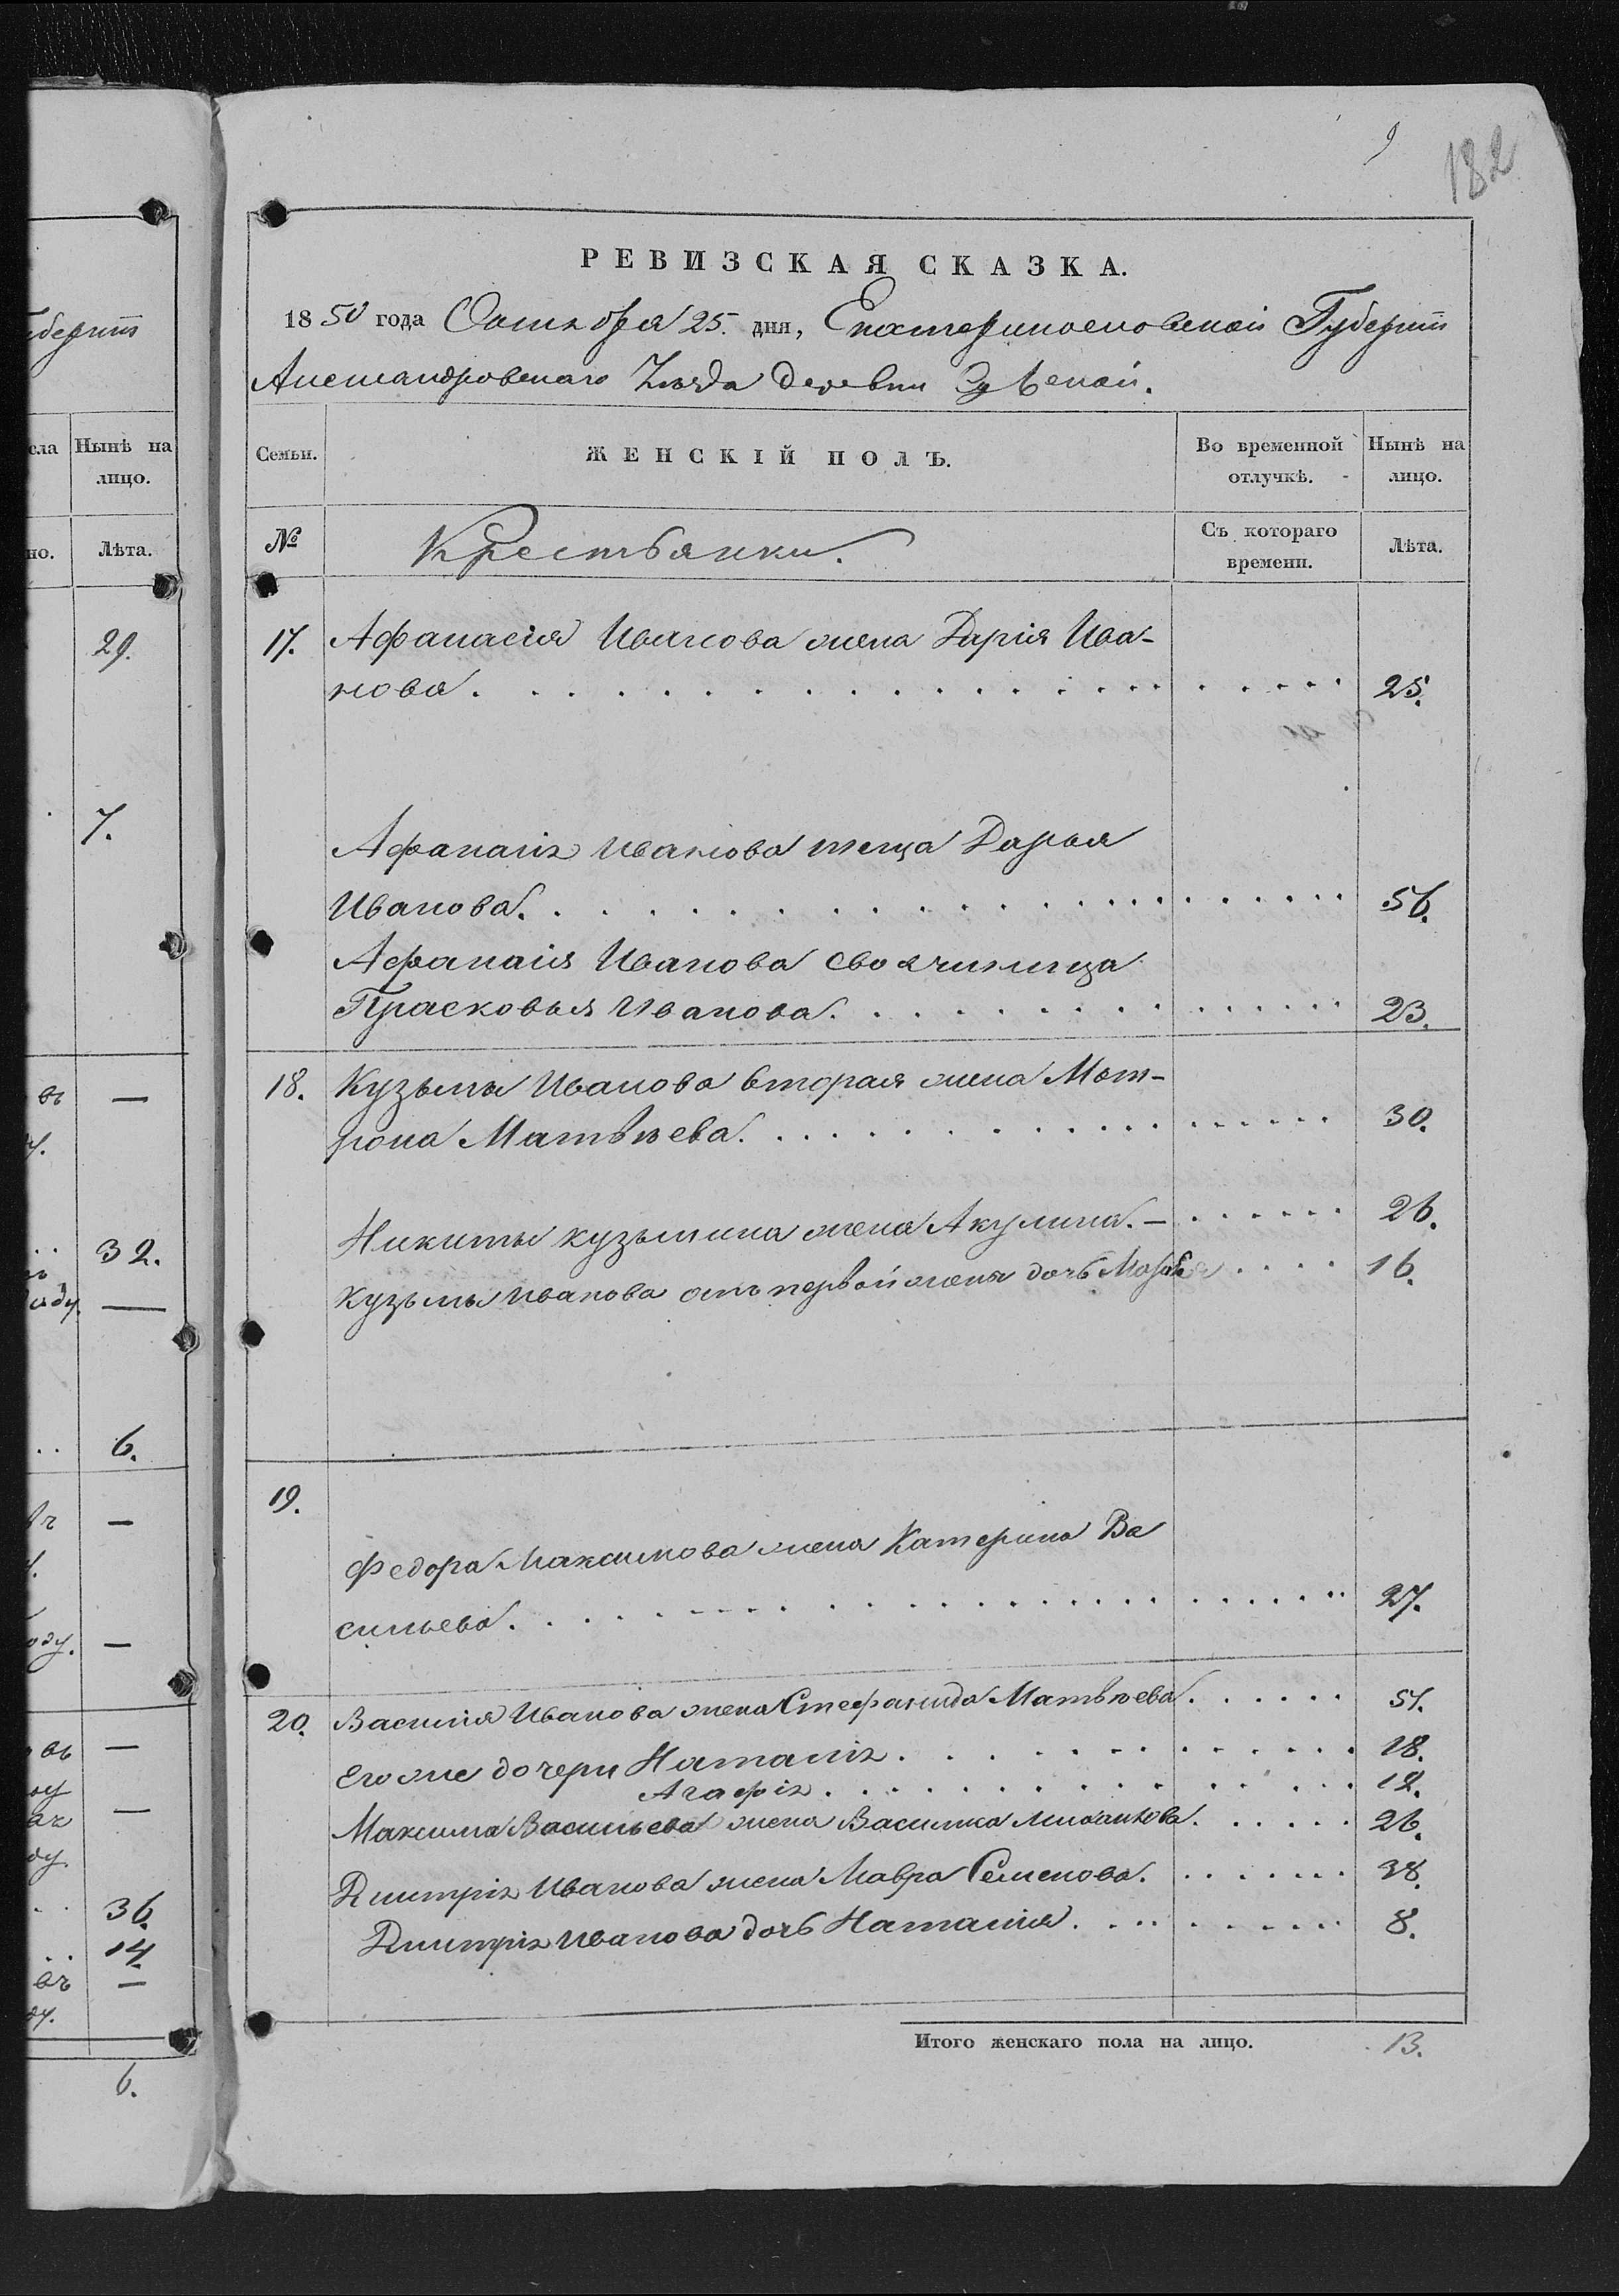 9
182
иберніи
ела Нынѣ на
лицо.
но. Лѣта.
29.
7.
въ —
32.
—
6.
—
—
въ —
—
36.
14.
—
6.
РЕВИЗСКАЯ СКАЗКА.
1850 года Октября 25. дня, Екатеринославской Губерніи
Александровскаго Уѣзда деревни
Семьи. ЖЕНСКІЙ ПОЛЪ. Во временной отлучкѣ. Нынѣ на лицо.
№ Крестьянки. Съ котораго времени. Лѣта.
17. Афанасія Иванова жена Дарія Ива-
нова. 25.
Афанасія Иванова теща Дарья
Иванова. 56.
Афанасія Иванова своячиница
Прасковья Иванова. 23.
18. Кузьмы Иванова вторая жена Мат-
рона Матвѣева. 30.
Никиты Кузьмина жена Акулина. — 26.
Кузьмы Иванова отъ первой жены дочь Марья 16.
19.
Федора Максимова жена Катерина Ва
сильева. 27.
20. Василія Иванова жена Стефанида Матвѣева. 51.
Его же дочери Наталія. 18.
Агафія. 12.
Максима Васильева жена Василиса Михайлова. 26.
Дмитрія Иванова жена Мавра Семенова. 38.
Дмитрія Иванова дочь Наталія. 8.
Итого женскаго пола на лицо. 13.